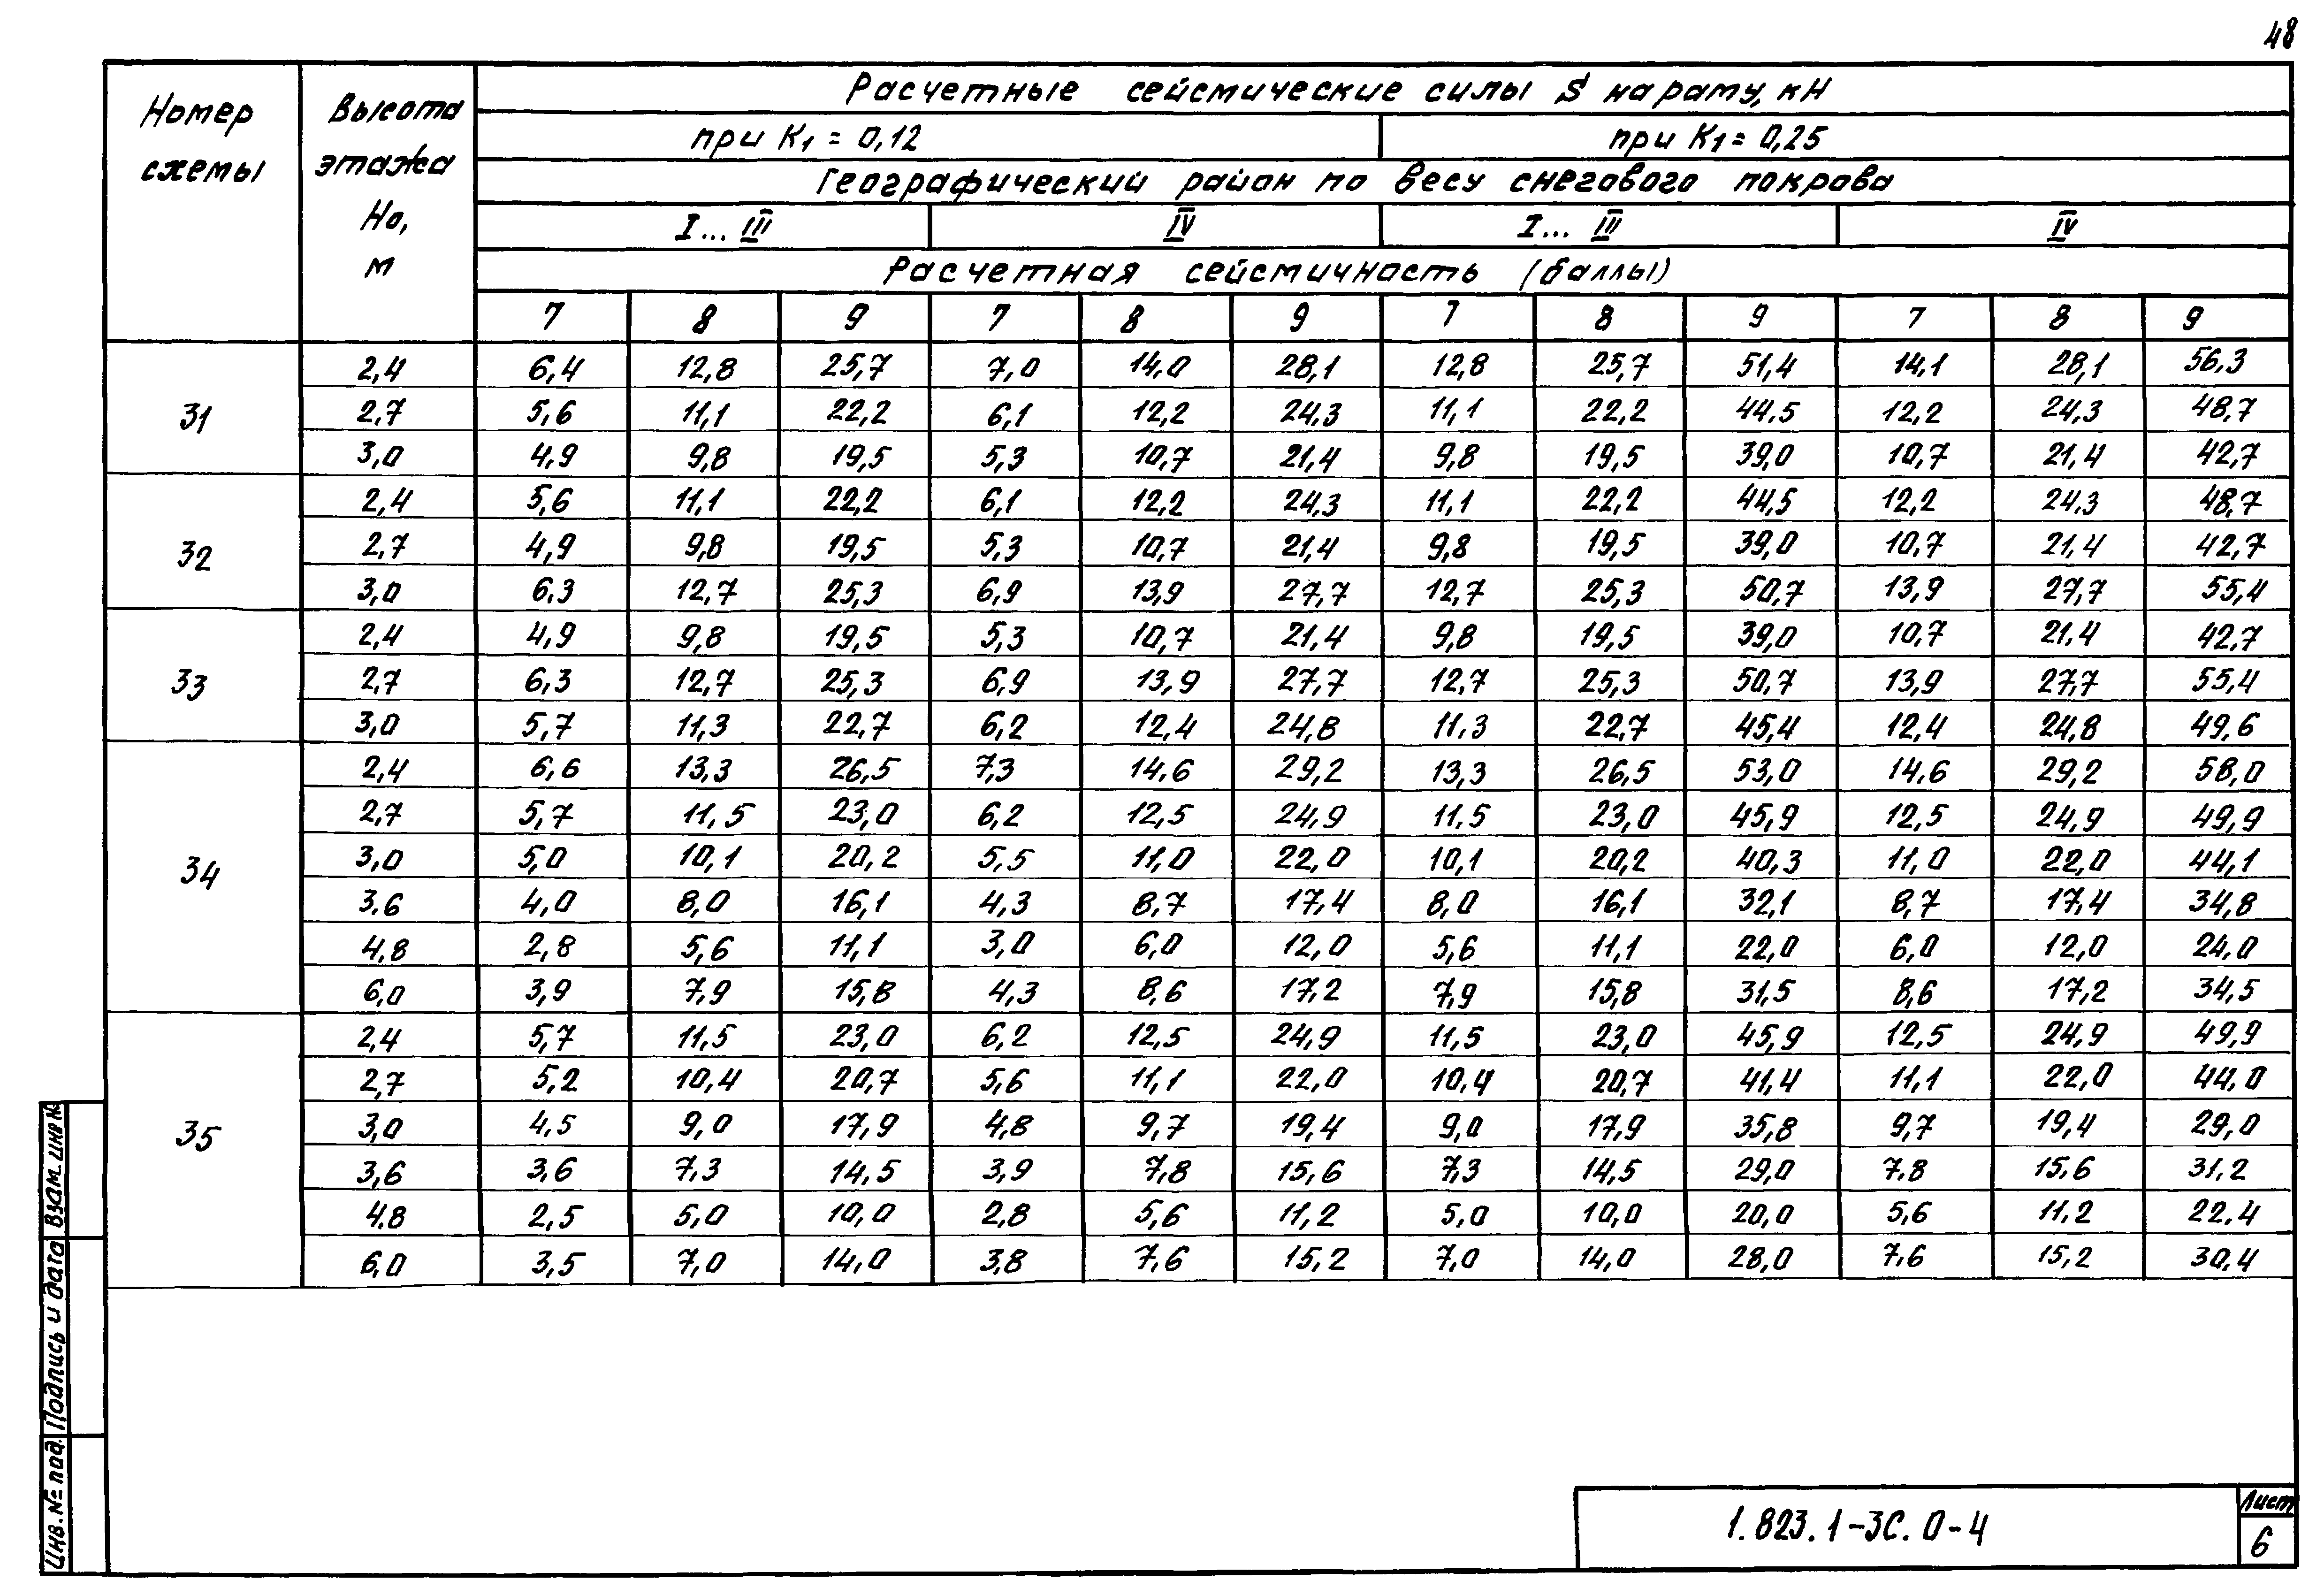 48
Номер схемы Высота этажа Но, м Расчетные сейсмические силы S на раму, кН
при К1 = 0,12 при К1 = 0,25
Географический район по весу снегового покрова
I... III IV I... III IV
Расчетная сейсмичность (баллы)
7 8 9 7 8 9 7 8 9 7 8 9
31 2,4 6,4 12,8 25,7 7,0 14,0 28,1 12,8 25,7 51,4 14,1 28,1 56,3
2,7 5,6 11,1 22,2 6,1 12,2 24,3 11,1 22,2 44,5 12,2 24,3 48,7
3,0 4,9 9,8 19,5 5,3 10,7 21,4 9,8 19,5 39,0 10,7 21,4 42,7
32 2,4 5,6 11,1 22,2 6,1 12,2 24,3 11,1 22,2 44,5 12,2 24,3 48,7
2,7 4,9 9,8 19,5 5,3 10,7 21,4 9,8 19,5 39,0 10,7 21,4 42,7
3,0 6,3 12,7 25,3 6,9 13,9 27,7 12,7 25,3 50,7 13,9 27,7 55,4
33 2,4 4,9 9,8 19,5 5,3 10,7 21,4 9,8 19,5 39,0 10,7 21,4 42,7
2,7 6,3 12,7 25,3 6,9 13,9 27,7 12,7 25,3 50,7 13,9 27,7 55,4
3,0 5,7 11,3 22,7 6,2 12,4 24,8 11,3 22,7 45,4 12,4 24,8 49,6
34 2,4 6,6 13,3 26,5 7,3 14,6 29,2 13,3 26,5 53,0 14,6 29,2 58,0
2,7 5,7 11,5 23,0 6,2 12,5 24,9 11,5 23,0 45,9 12,5 24,9 49,9
3,0 5,0 10,1 20,2 5,5 11,0 22,0 10,1 20,2 40,3 11,0 22,0 44,1
3,6 4,0 8,0 16,1 4,3 8,7 17,4 8,0 16,1 32,1 8,7 17,4 34,8
4,8 2,8 5,6 11,1 3,0 6,0 12,0 5,6 11,1 22,0 6,0 12,0 24,0
6,0 3,9 7,9 15,8 4,3 8,6 17,2 7,9 15,8 31,5 8,6 17,2 34,5
35 2,4 5,7 11,5 23,0 6,2 12,5 24,9 11,5 23,0 45,9 12,5 24,9 49,9
2,7 5,2 10,4 20,7 5,6 11,1 22,0 10,4 20,7 41,4 11,1 22,0 44,0
3,0 4,5 9,0 17,9 4,8 9,7 19,4 9,0 17,9 35,8 9,7 19,4 29,0
3,6 3,6 7,3 14,5 3,9 7,8 15,6 7,3 14,5 29,0 7,8 15,6 31,2
4,8 2,5 5,0 10,0 2,8 5,6 11,2 5,0 10,0 20,0 5,6 11,2 22,4
6,0 3,5 7,0 14,0 3,8 7,6 15,2 7,0 14,0 28,0 7,6 15,2 30,4
Инв. № под. Подпись и дата Взам. инв №
1.823.1-3С.0-4
Лист
6